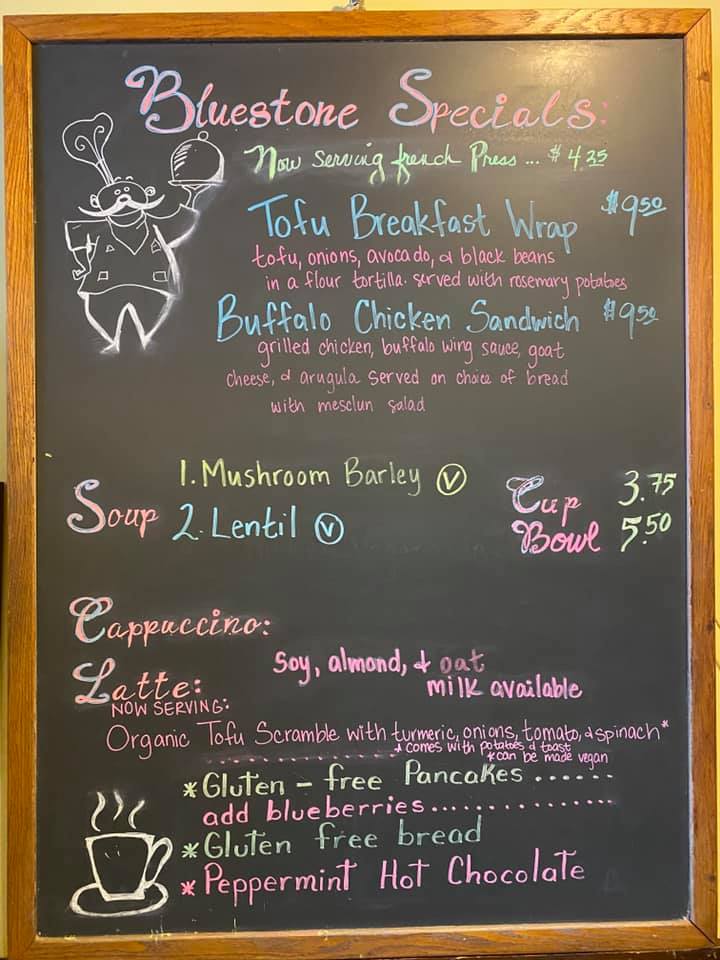 Bluestone Specials:
Now serving french Press ... $4.25
Tofu Breakfast Wrap $9.50
tofu, onions, avocado, & black beans
in a flour tortilla. served with rosemary potatoes
Buffalo Chicken Sandwich $9.50
grilled chicken, buffalo wing sauce, goat
cheese, & arugula served on choice of bread
with mesclun salad
Soup
1. Mushroom Barley V
2. Lentil V
Cup 3.75
Bowl 5.50
Cappuccino:
Latte:
Soy, almond, & oat
milk available
NOW SERVING:
Organic Tofu Scramble with turmeric, onions, tomato, & spinach*
* comes with potatoes & toast
*can be made vegan
*Gluten-free Pancakes ......
add blueberries...............
*Gluten free bread
*Peppermint Hot Chocolate